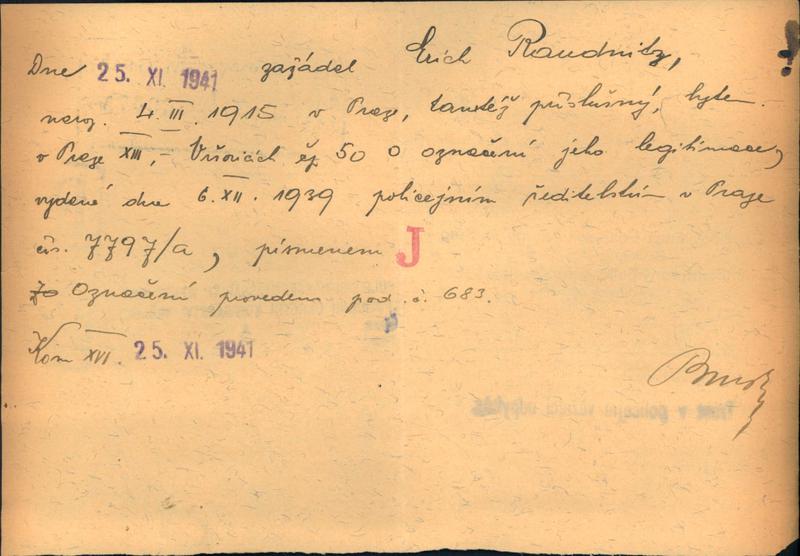 Dne 25. XI. 1941 zažádal Erich Raudnitz,
naroz. 4. III. 1915 v Praze, tamtéž příslušný, bytem
v Praze XIII,- Vršovicích čp 50 o označení jeho legitimace,
vydané dne 6. XII. 1939 policejním ředitelstvím v Praze
čís. 7797/a, písmenem J
Označení provedeno pod č. 683.
Kom XVI. 25. XI. 1941